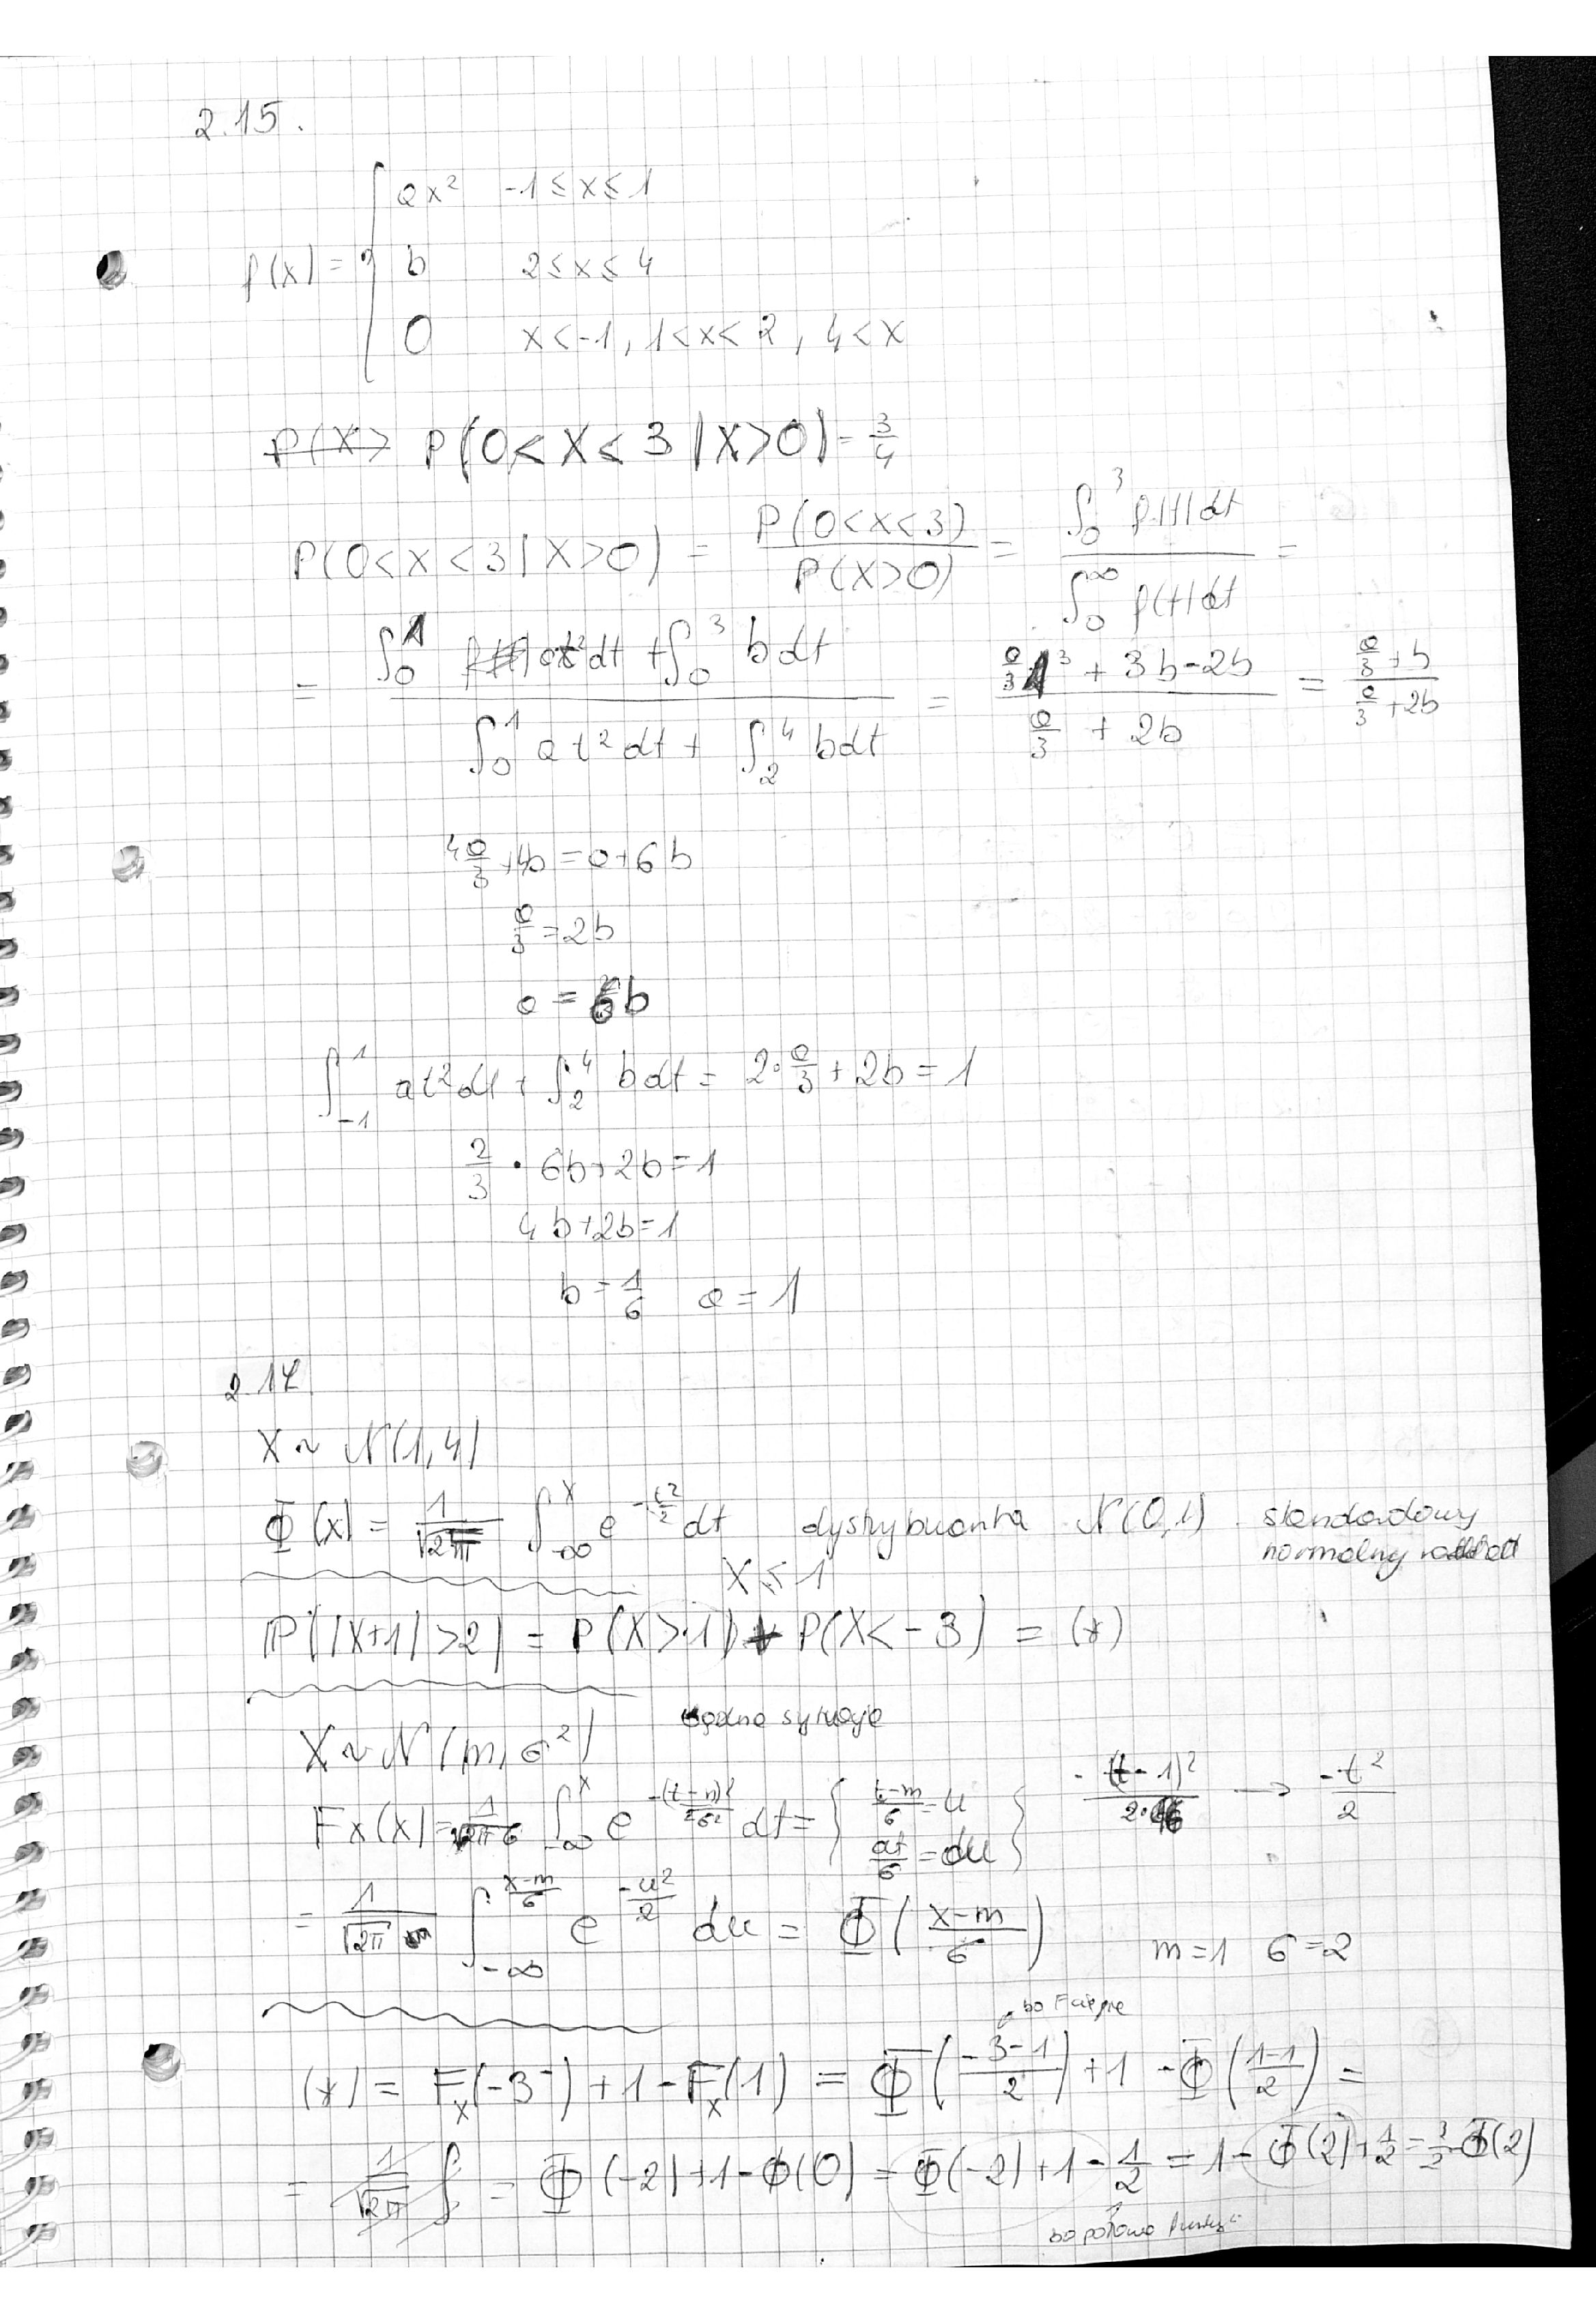 2.15.
f(x) = { ax² -1 ≤ x ≤ 1
b 2 ≤ x ≤ 4
0 x < -1, 1 < x < 2, 4 < x
P(X> P(0 < X ≤ 3 | X > 0) = 3/4
P(0 < X < 3 | X > 0) = P(0 < X < 3) / P(X > 0) = ∫₀³ f(t)dt / ∫₀^∞ f(t)dt =
= (∫₀¹ at²dt + ∫₀³ b dt) / (∫₀¹ at²dt + ∫₂⁴ bdt) = (a/3 1³ + 3b - 2b) / (a/3 + 2b) = (a/3 + b) / (a/3 + 2b)
4a/3 + 4b = a + 6b
a/3 = 2b
a = 6b
∫₋₁¹ at²dt + ∫₂⁴ bdt = 2·a/3 + 2b = 1
2/3 · 6b + 2b = 1
4b + 2b = 1
b = 1/6 a = 1
2.17
X ~ N(1,4)
Φ(x) = 1/√2π ∫_{-∞}^{x} e^{-t²/2} dt dystrybuanta N(0,1) standardowy
normalny rozkład
X ≤ 1
P(|X+1| > 2) = P(X > 1) + P(X < -3) = (*)
X ~ N(m, σ²)
Fx(x) = 1/√2π σ ∫_{-∞}^{x} e^{-(t-m)²/2σ²} dt = { (t-m)/σ = u -(t-1)²/2· → -t²/2
dt/σ = du }
= 1/√2π ∫_{-∞}^{(x-m)/σ} e^{-u²/2} du = Φ((x-m)/σ) m = 1 σ = 2
bo F ciągłe
(*) = Fx(-3⁻) + 1 - Fx(1) = Φ((-3-1)/2) + 1 - Φ((1-1)/2) =
= 1/√2π ∫ = Φ(-2) + 1 - Φ(0) = Φ(-2) + 1 - 1/2 = 1 - Φ(2) + 1/2 = 3/2 - Φ(2)
bo połowa